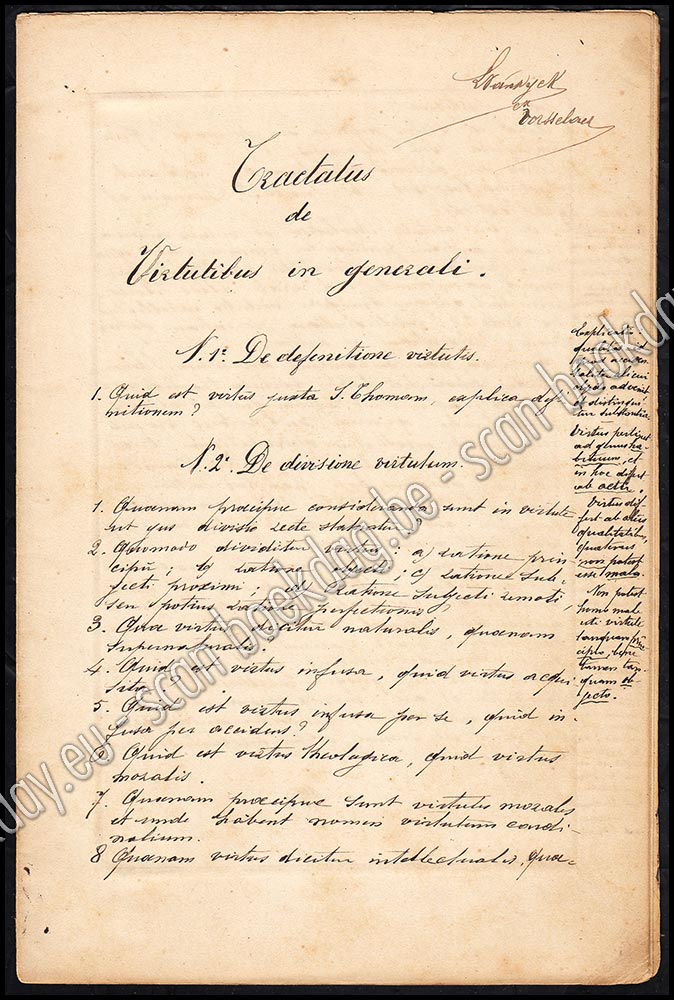 LVandyck
ex
Vorsselaer
Tractatus
de
Virtutibus in generali.
N. 1º De definitione virtutis.
1. Quid est virtus juxta S. Thomam, explica defi-
nitionem?
N. 2º. De divisione virtutum.
1. Quaenam praecipue consideranda sunt in virtute
ut ejus divisio recte statuatur
2. Quomodo dividitur virtus: a) ratione prin-
cipii; b) ratione objecti; c) ratione sub-
jecti proximi; d) ratione subjecti remoti,
seu potius ratione perfectionis,
3. Quae virtus dicitur naturalis, quaenam
supernaturalis?
4. Quid est virtus infusa, quid virtus acqui-
sita?
5. Quid est virtus infusa per se, quid in-
fusa per accidens?
6 Quid est virtus theologica, quid virtus
moralis.
7. Quaenam praecipue sunt virtutes morales
et unde habent nomen virtutum cardi-
nalium.
8 Quaenam virtus dicitur intellectualis, quae-
Explicatio.
qualitas
advenit
et distingui-
tur substantia
Virtus pertinet
ad genus ha-
bituum, et
in hoc differt
ab actu.
Virtus dif-
fert ab aliis
qualitatibus,
quatenus
non potest
esse mala.
Non potest
homo male
uti virtute
tanquam prin-
cipio, bene
tamen tan-
quam ob-
jecto.
day.eu - scan-boekdag.be - scan-boekday